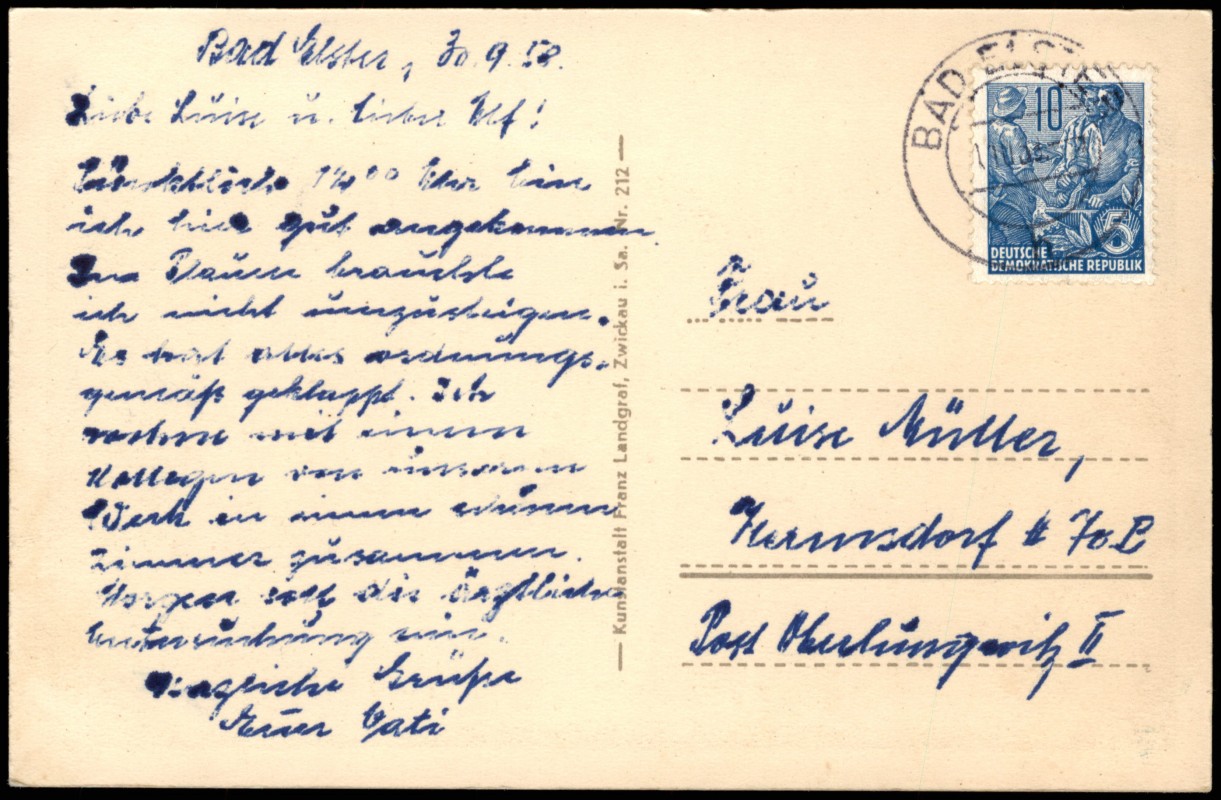 Bad Elster, 30.9.58.
Liebe Luise u. lieber Ulf!
Pünktlich 14⁰⁰ Uhr bin
ich hier gut angekommen.
In Plauen brauchte
ich nicht umzusteigen.
Es hat alles ordnungs-
gemäß geklappt. Ich
wohne mit einem
Kollegen von unserem
Werk in einem schönen
Zimmer zusammen.
Morgen soll die ärztliche
Untersuchung sein.
Herzliche Grüße
Euer Vati
Kunstanstalt Franz Landgraf, Zwickau i. Sa. Nr. 212
BAD ELSTER
10
5
DEUTSCHE
DEMOKRATISCHE REPUBLIK
Frau
Luise Müller,
Hermsdorf
Post Oberlungwitz II